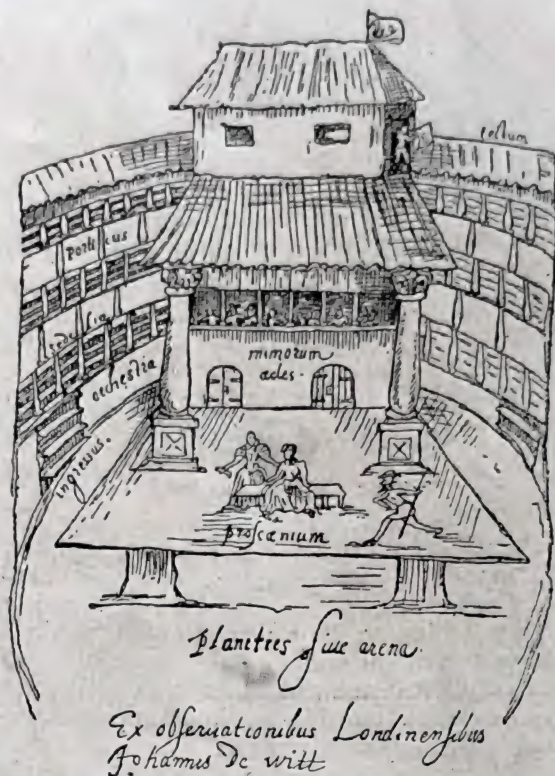 tectum
porticus
sedilia
orchestra
mimorum
ædes.
ingressus.
proscænium
planities siue arena.
Ex obſeruationibus Londinenſibus
Johannis De witt